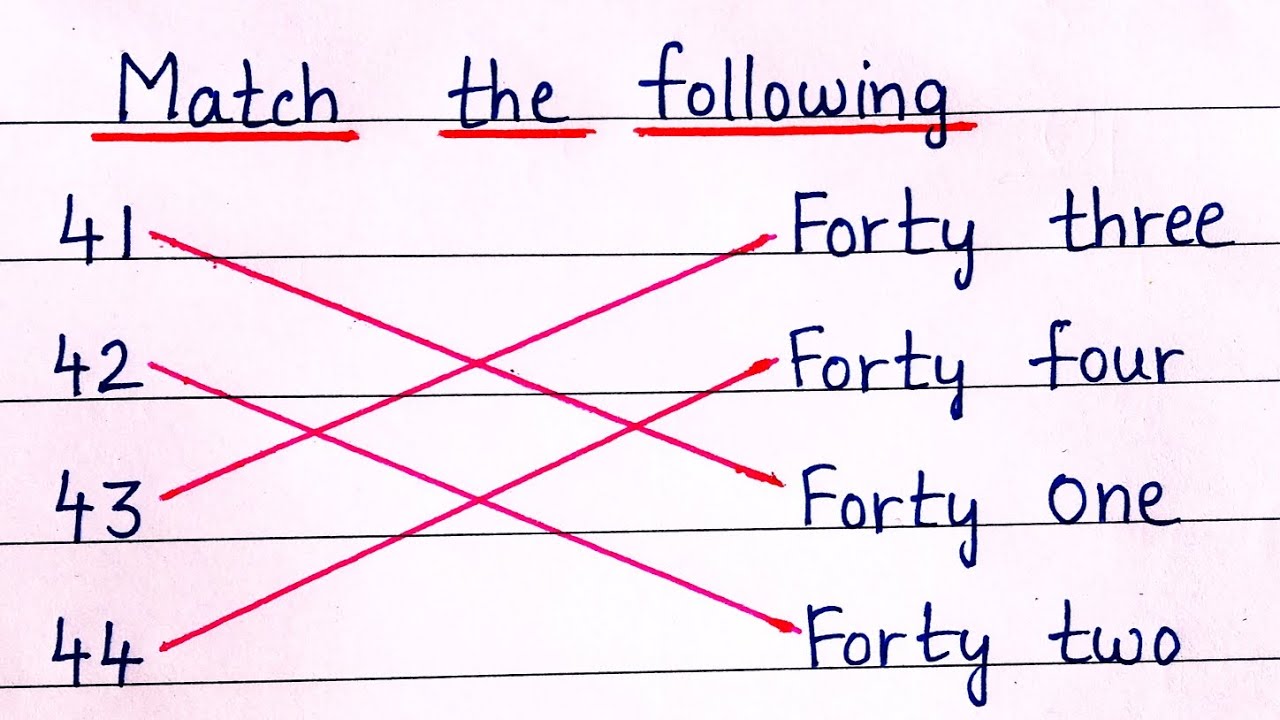 Match the following
41 Forty three
42 Forty four
43 Forty one
44 Forty two